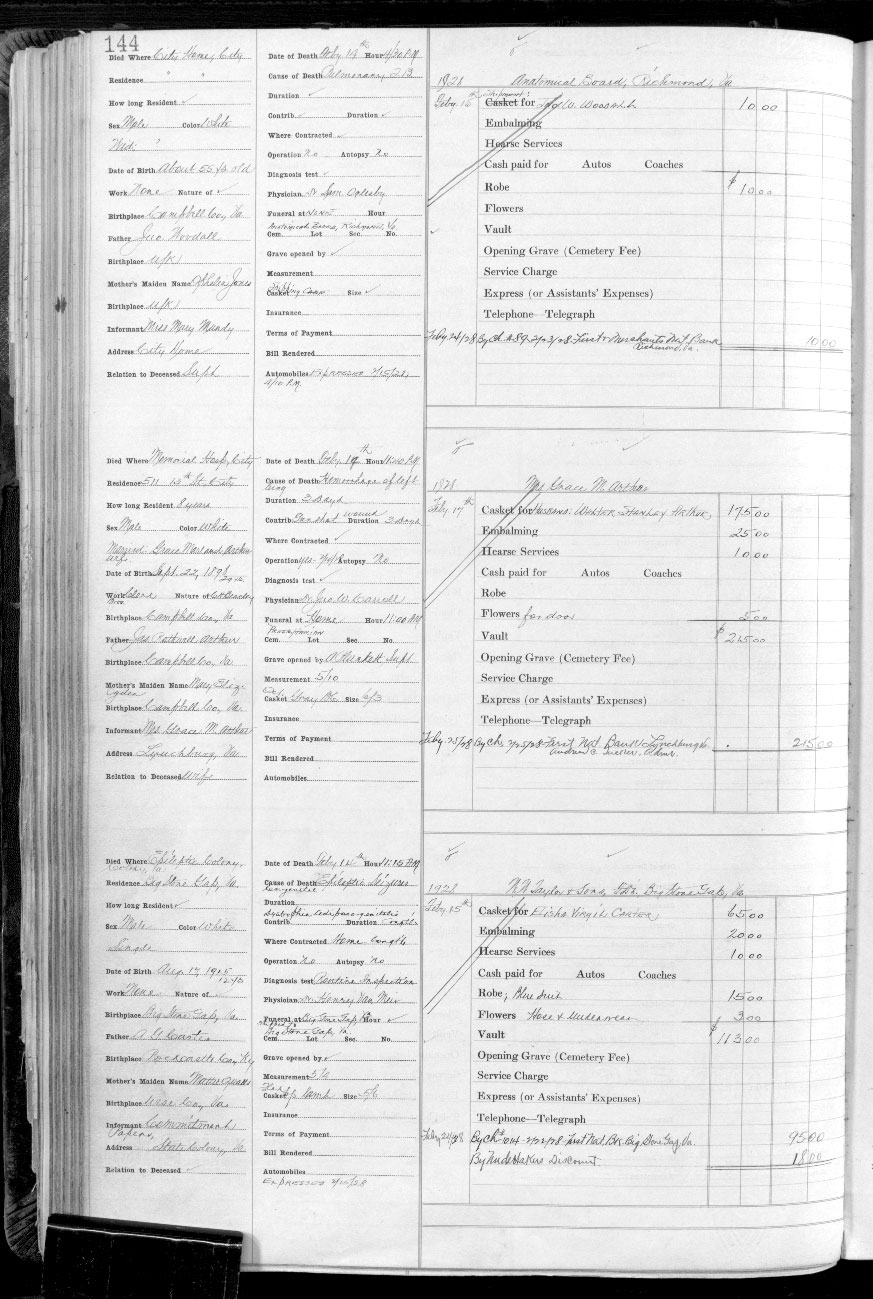 144
Died Where City Home, City
Residence " "
How long Resident ✓
Sex Male Color White
Wid. ?
Date of Birth About 55 yrs old
Work None Nature of ✓
Birthplace Campbell Co, Va
Father Jno. Woodall
Birthplace U/K
Mother's Maiden Name Jones
Birthplace U/K
Informant Miss Mary Mundy
Address City Home
Relation to Deceased Supt
Date of Death Feby 14th Hour 4/30 P.M
Cause of Death Pulmonary T.B.
Duration ✓
Contrib ✓ Duration ✓
Where Contracted ✓
Operation No Autopsy No
Diagnosis test ✓
Physician Dr Sam Oglesby
Funeral at None Hour
Anatomical Board, Richmond, Va
Cem. Lot Sec. No.
Grave opened by ✓
Measurement
Casket Case Size ✓
Insurance
Terms of Payment
Bill Rendered
Automobiles Expressed 2/15/28,
4/10 P.M.
1928 Anatomical Board, Richmond, Va
Feby. 16th Shipment
Casket for Jno. W. Woodall 10 00
Embalming
Hearse Services
Cash paid for Autos Coaches
Robe $10 00
Flowers
Vault
Opening Grave (Cemetery Fee)
Service Charge
Express (or Assistants' Expenses)
Telephone—Telegraph
Feby 24/28 By Ch. 2/23/28 First & Merchants Nat. Bank 10 00
Richmond, Va.
Died Where Memorial Hosp, City
Residence 511 13th St, City
How long Resident 8 years
Sex Male Color White
Married Grace Marland Arthur
wife
Date of Birth Sept. 22, 189
Work Nature of
Birthplace Campbell Co, Va
Father Jas Arthur
Birthplace Campbell Co, Va
Mother's Maiden Name Mary Eliz.
Ogden
Birthplace Campbell Co, Va
Informant Mrs Grace M. Arthur
Address Lynchburg, Va
Relation to Deceased Wife
Date of Death Feby. 16th Hour 11:40 P.M
Cause of Death Hemorrhage of left
lung
Duration 3 Days
Contrib Gun shot wound Duration 3 Days
Where Contracted ✓
Operation yes Autopsy No
Diagnosis test ✓
Physician Dr Jno W. Carroll
Funeral at Home Hour 11:00 AM
Cem. Lot Sec. No.
Grave opened by Supt
Measurement 5/10
Casket Gray Size 6/3
Insurance
Terms of Payment
Bill Rendered
Automobiles
1928 Mrs Grace M. Arthur
Feby. 17th
Casket for Husband. Walter Stanley Arthur, 175 00
Embalming 25 00
Hearse Services 10 00
Cash paid for Autos Coaches
Robe
Flowers for door 5 00
Vault $215 00
Opening Grave (Cemetery Fee)
Service Charge
Express (or Assistants' Expenses)
Telephone—Telegraph
Feby 25/28 By Ch. 2/25/28 First Nat. Bank Lynchburg Va. 215 00
Died Where Epileptic Colony,
Colony, Va
Residence Big Stone Gap, Va.
How long Resident ✓
Sex Male Color White
Single
Date of Birth Aug 17, 1905
Work None Nature of ✓
Birthplace Big Stone Gap, Va.
Father Carter
Birthplace Ky
Mother's Maiden Name
Birthplace Wise Co, Va
Informant Commitment
Papers,
Address State Colony, Va
Relation to Deceased ✓
Date of Death Feby 14th Hour 11:15 P.M
Cause of Death Epileptic Seizures
Congenital
Duration
Contrib Duration
Where Contracted Home
Operation No Autopsy No
Diagnosis test Routine Inspection
Physician Dr Henry
Funeral at Big Stone Gap, Va Hour ✓
Big Stone Gap, Va.
Cem. Lot Sec. No.
Grave opened by ✓
Measurement 5/4
Casket Lamb Size 5/6
Insurance
Terms of Payment
Bill Rendered
Automobiles
Expressed 2/15/28
1928 Taylor & Sons, Big Stone Gap, Va.
Feby. 15th
Casket for Elisha Virgil Carter, 65 00
Embalming 20 00
Hearse Services 10 00
Cash paid for Autos Coaches
Robe; Blue Suit 15 00
Flowers Hose & Underwear 3 00
Vault $113 00
Opening Grave (Cemetery Fee)
Service Charge
Express (or Assistants' Expenses)
Telephone—Telegraph
By Ch# 1014 - 2/22/28 First Nat. Bk. Big Stone Gap, Va. 95 00
By Undertakers Discount 18 00